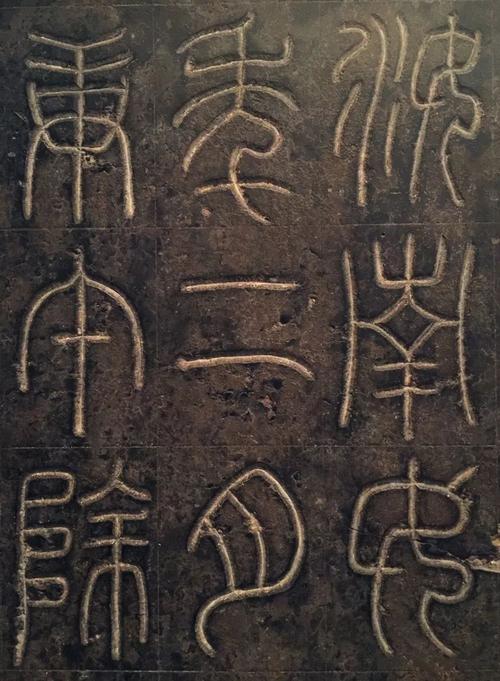 汝南女
年二月
庚午除